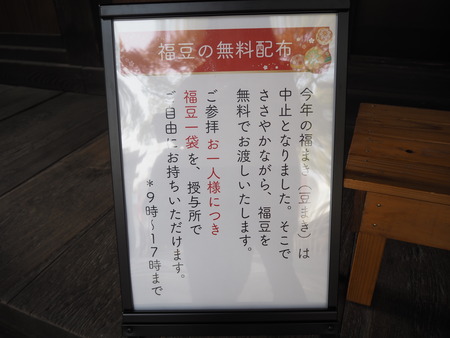 福豆の無料配布
今年の福まき（豆まき）は
中止となりました。そこで
ささやかながら、福豆を
無料でお渡しいたします。
ご参拝 お一人様につき
福豆一袋を、授与所で
ご自由にお持ちいただけます。
＊9時〜17時まで